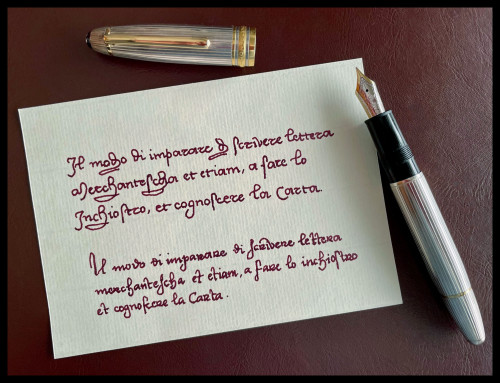 Il modo di imparare di scrivere lettera
Merchantescha et etiam, a fare lo
Inchiostro, et cognoscere la Carta.
Il modo di imparare di scrivere lettera
merchantescha et etiam, a fare lo inchiostro
et cognoscere la Carta.